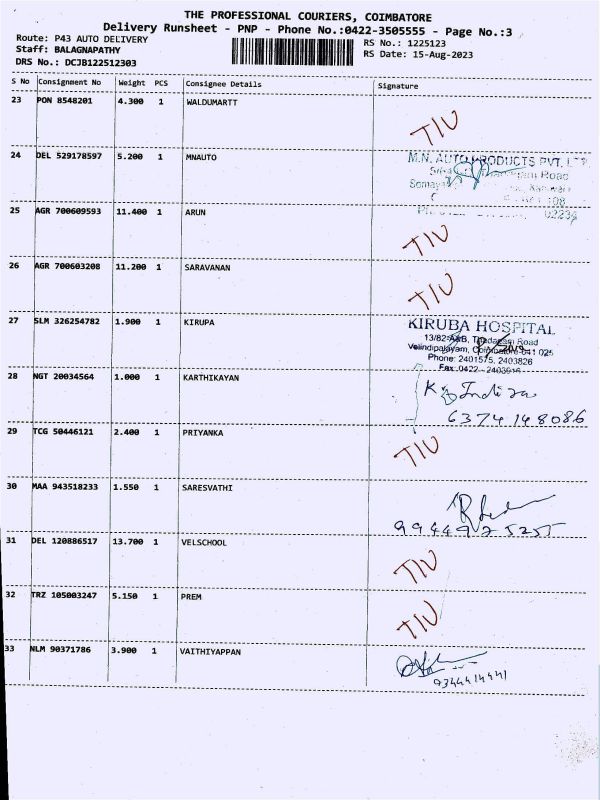 THE PROFESSIONAL COURIERS, COIMBATORE
Delivery Runsheet - PNP - Phone No.:0422-3505555 - Page No.:3
Route: P43 AUTO DELIVERY RS No.: 1225123
Staff: BALAGNAPATHY RS Date: 15-Aug-2023
DRS No.: DCJB122512303
S No Consignment No Weight PCS Consignee Details Signature
23 PON 8548201 4.300 1 WALDUMARTT
TIU
24 DEL 529178597 5.200 1 MNAUTO M.N. AUTO PRODUCTS PVT. LTD
Road
25 AGR 700609593 11.400 1 ARUN
TIU
26 AGR 700603208 11.200 1 SARAVANAN
TIU
27 SLM 326254782 1.900 1 KIRUPA KIRUBA HOSPITAL
13/82-A&B, Thadagam Road
Velandipalayam, Coimbatore-641 025
Phone: 2401575, 2403826
Fax: 0422 -
28 NGT 20034564 1.000 1 KARTHIKAYAN
Indira
6374148086
29 TCG 50446121 2.400 1 PRIYANKA TIU
30 MAA 943518233 1.550 1 SARESVATHI
9944925255
31 DEL 120886517 13.700 1 VELSCHOOL
TIU
32 TRZ 105003247 5.150 1 PREM
TIU
33 NLM 90371786 3.900 1 VAITHIYAPPAN
9344414441